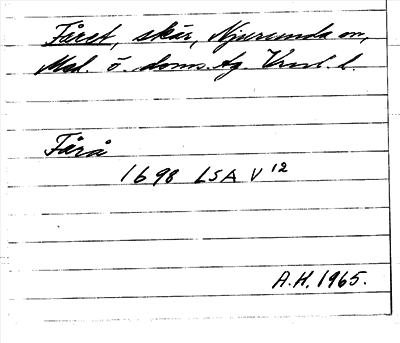 Fåret, skär, Njurunda sn,
Med. ö. doms. tg Vnrl. l.
Fårå
1698 LSA V 12
A.H. 1965.